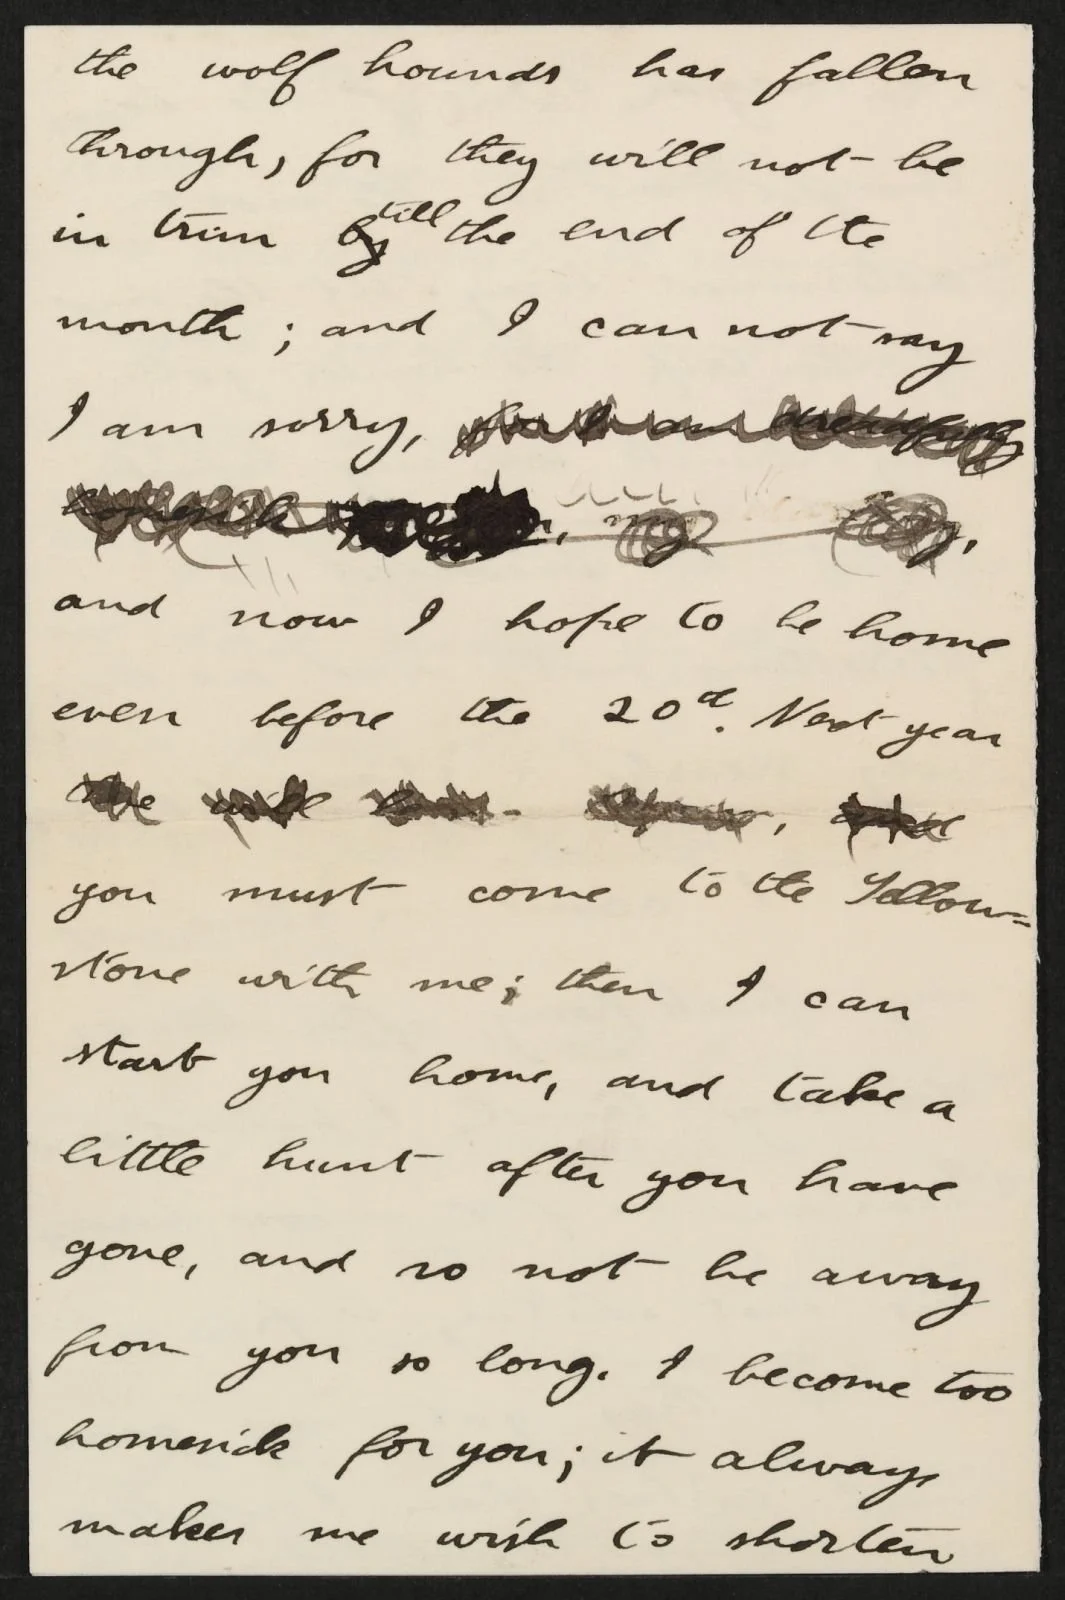 the wolf hounds has fallen
through, for they will not be
in trim by till the end of the
month; and I can not say
I am sorry, for I am dreadfully
homesick
and now I hope to be home
even before the 20th. Next year
you must come to the Yellow=
stone with me; then I can
start you home, and take a
little hunt after you have
gone, and so not be away
from you so long. I become too
homesick for you; it always
makes me wish to shorten